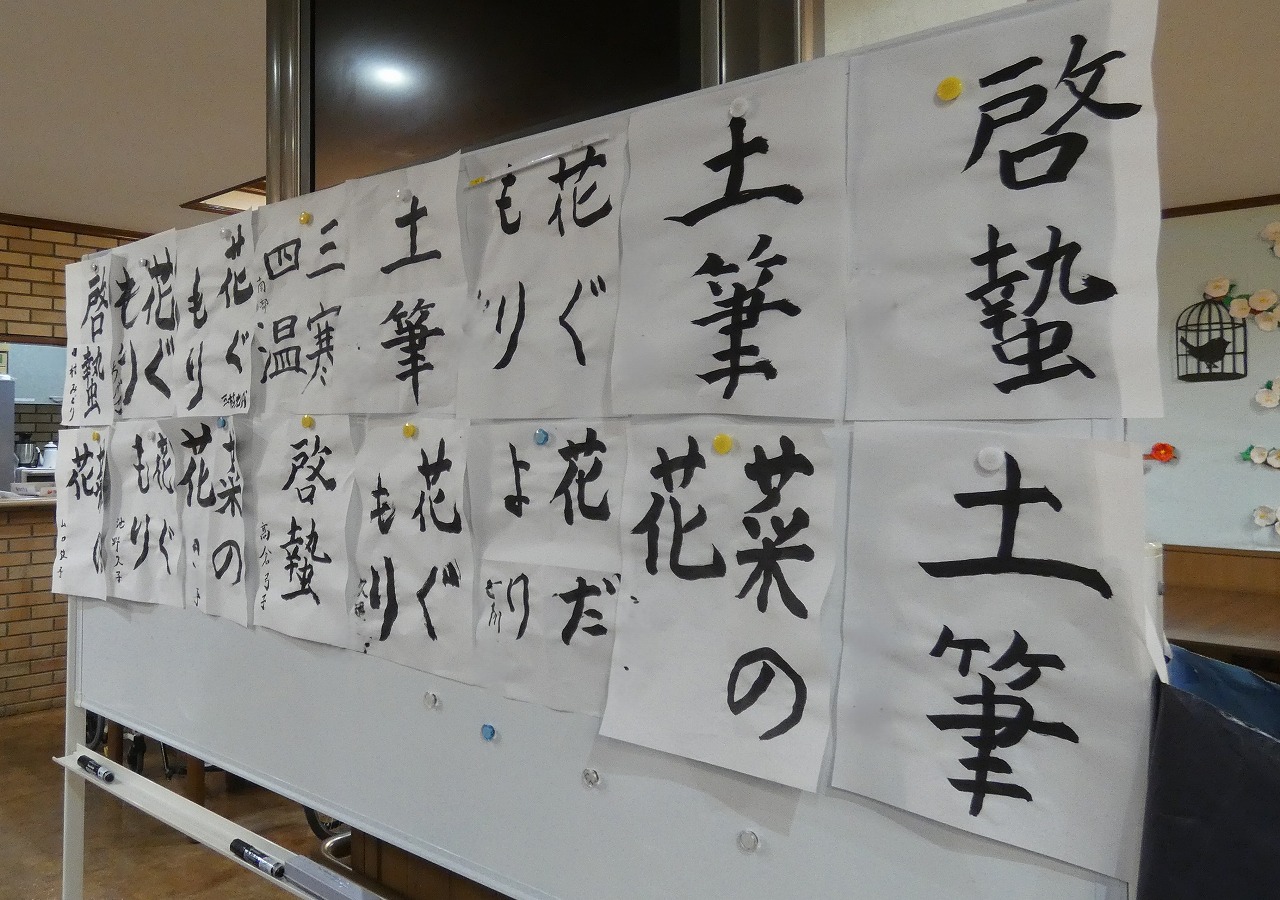 啓蟄
土筆
花ぐ
もり
土筆
三寒
四温
花ぐ
もり
花ぐ
もり
啓蟄
土筆
菜の
花
花だ
より
花ぐ
もり
啓蟄
高倉
子
菜の
花
花ぐ
もり
花
山口
子